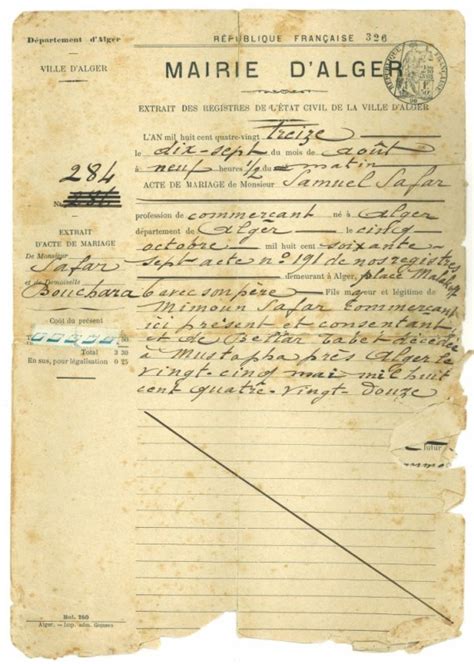 Département d'Alger
RÉPUBLIQUE FRANÇAISE 326
VILLE D'ALGER
MAIRIE D'ALGER
EXTRAIT DES REGISTRES DE L'ÉTAT CIVIL DE LA VILLE D'ALGER
L'AN mil huit cent quatre-vingt treize
le dix-sept du mois de août
à neuf heures 1/2 du matin
284
ACTE DE MARIAGE de Monsieur Samuel Safar
No
profession de commerçant né à Alger
EXTRAIT
D'ACTE DE MARIAGE
De Monsieur
Safar
et de Demoiselle
Bouchara
département de Alger le cinq
octobre mil huit cent soixante
sept acte no 191 de nos registres
demeurant à Alger, place Malakoff
6 avec son père Fils majeur et légitime de
Mimoun Safar Commerçant
ici présent et consentant
et de Betzar Babet décédée
à Mustapha près Alger le
vingt-cinq mai mil huit
cent quatre-vingt-douze
Coût du présent
Total 2 30
En sus, pour légalisation 0 25
futur
Mod. 260
Alger. — Imp. adm. Gojosso